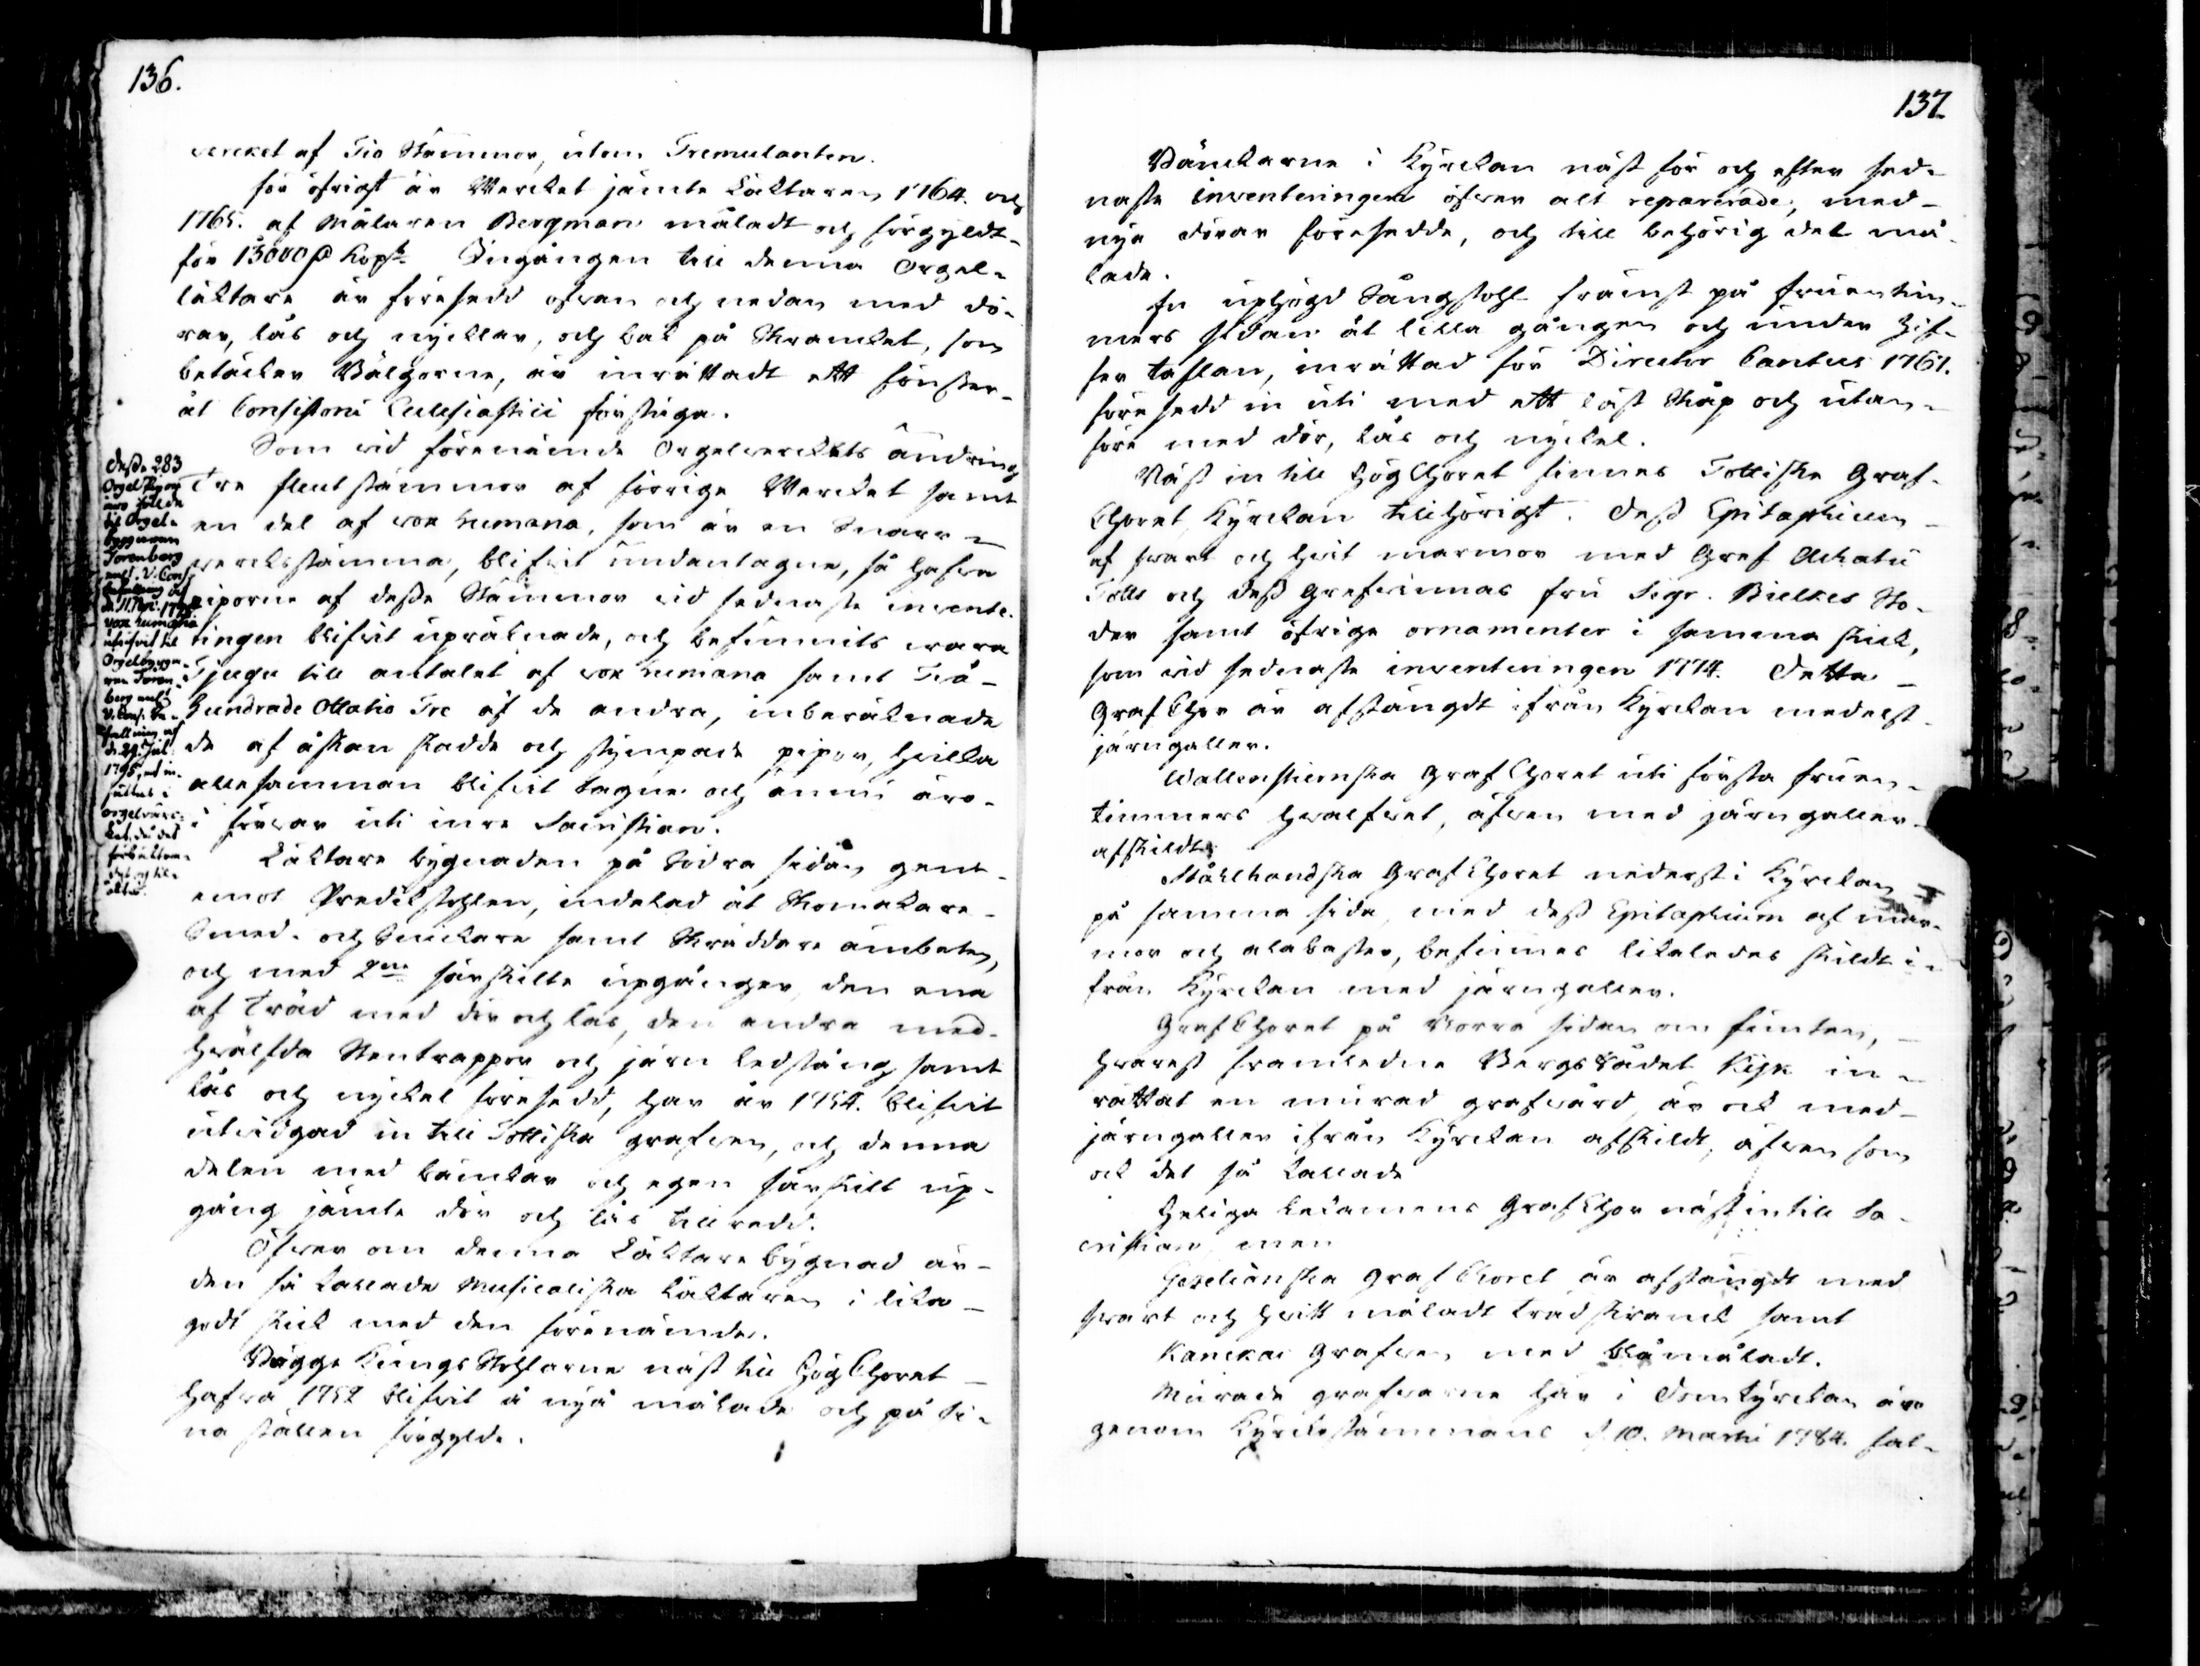 136.
vercket af Tio Stämmor, utom Tremulanten.
för öfrigt är Wercket jämte Läktaren 1764. och
1765. af Målaren Bergman måladt och förgyldt
för 13000 kopst. Ingången till denna Orgel-
läktare är försedd ofvan och nedan med dö-
rar, lås och nycklar, och bak på Skrancket, som
betäcker Bälgorne, är inrättadt ett fönster
åt Consistorii Ecclesiastici förstuga.
Som vid förenämnde Orgelverckets ändring
Tre fleut stämmor af förrige Wercket samt
en del af vox humana, som är en Snarr-
vercksstämma, blifvit undantagne, så hafva
piporne af desse Stämmor vid sednaste invente-
ringen blifvit upräknade, och befunnits vara
Tjugu till antalet af vox humana samt Två-
Hundrade Ottatio Tre af de andra, inberäknade
de af åskan skadde och stympade pipor, hvilka
allesamman blifvit tagne och ännu äro
i förvar uti inre Sacristian.
Läktare bygnaden på Södra sidan gent-
emot Predikstohlen, indelad åt Skomakare-
Smed- och Snickare samt Skräddare ämbeten,
och med 2ne särskilte upgånger, den ena
af Träd med dör och lås, den andra med
hvälfda Stentrappor och järn ledstång samt
lås och nyckel försedd, har år 1754. blifvit
utvidgad in till Tottiska grafven, och denna
delen med bänckar och egen särskilt up-
gång jämte dör och lås tillredd.
Öfver om denna Läktare bygnad är
den så kallade Musicaliska Läktaren i lika
godt skick med den förenämnde.
Bägge Kungs Stohlarne näst till Högchoret
hafva 1752 blifvit å nyo målade och på si-
na ställen förgylde.
Desse 283
Orgel Pipor
äro sålde
til Orgel-
byggaren
Torenberg
enl. V. Cons.
vox humana
utgifvit til
Orgelbygga-
ren Toren-
berg enl.
V. Cons. be-
fallning af
d. 29. Jul.
1795, at in-
sättas i
orgelverc-
ket, då det
137.
Bänckarne i Kyrckan näst för och efter sed-
naste inventeringen öfver alt reparerade, med
nya dörar försedde, och till behörig del må-
lade.
En uphögd Sångstohl främst på fruentim-
mers sidan åt lilla gången och under Zif-
fer taflan, inrättad för Director Cantus 1761.
försedd in uti med ett låst Skåp och utan-
före med dör, lås och nyckel.
Näst in till HögChoret finnes Tottiska Graf-
Choret, Kyrckan tillhörigt. Dess Epitaphium
af svart och hvit marmor med Gref Achatii
Totts och dess Grefvinnas fru Sigr. Bielkes Sto-
der samt öfrige ornamenter i samma skick,
som vid sednaste inventeringen 1774. Detta
GrafChor är afstängdt ifrån Kyrckan medelst
järngaller.
Wallenstiernska GrafChoret uti första fruen-
timmers hvalfvet, äfven med järngaller
afskildt.
Stålhandska GrafChoret nederst i Kyrckan
på samma sida, med dess Epitaphium af mar-
mor och alabaster, befinnes likaledes skildt i-
från Kyrckan med järngaller.
GrafChoret på Norra sidan om funten,
hvarest framledne Bergsrådet Kijk in-
rättat en murad grafvård, är ock med
järngaller ifrån Kyrckan afskildt, äfven som
ock det så kallade
Heliga Lekamens GrafChor näst intill Sa-
cristian, men
Gezelianska GrafChoret är afstängdt med
svart och hvitt måladt träd skranck samt
Kanckas Grafven med blåmåladt.
Murade grafvarne här i Domkyrckan äro
genom Kyrckostämmans d. 10. Martii 1784. fat-